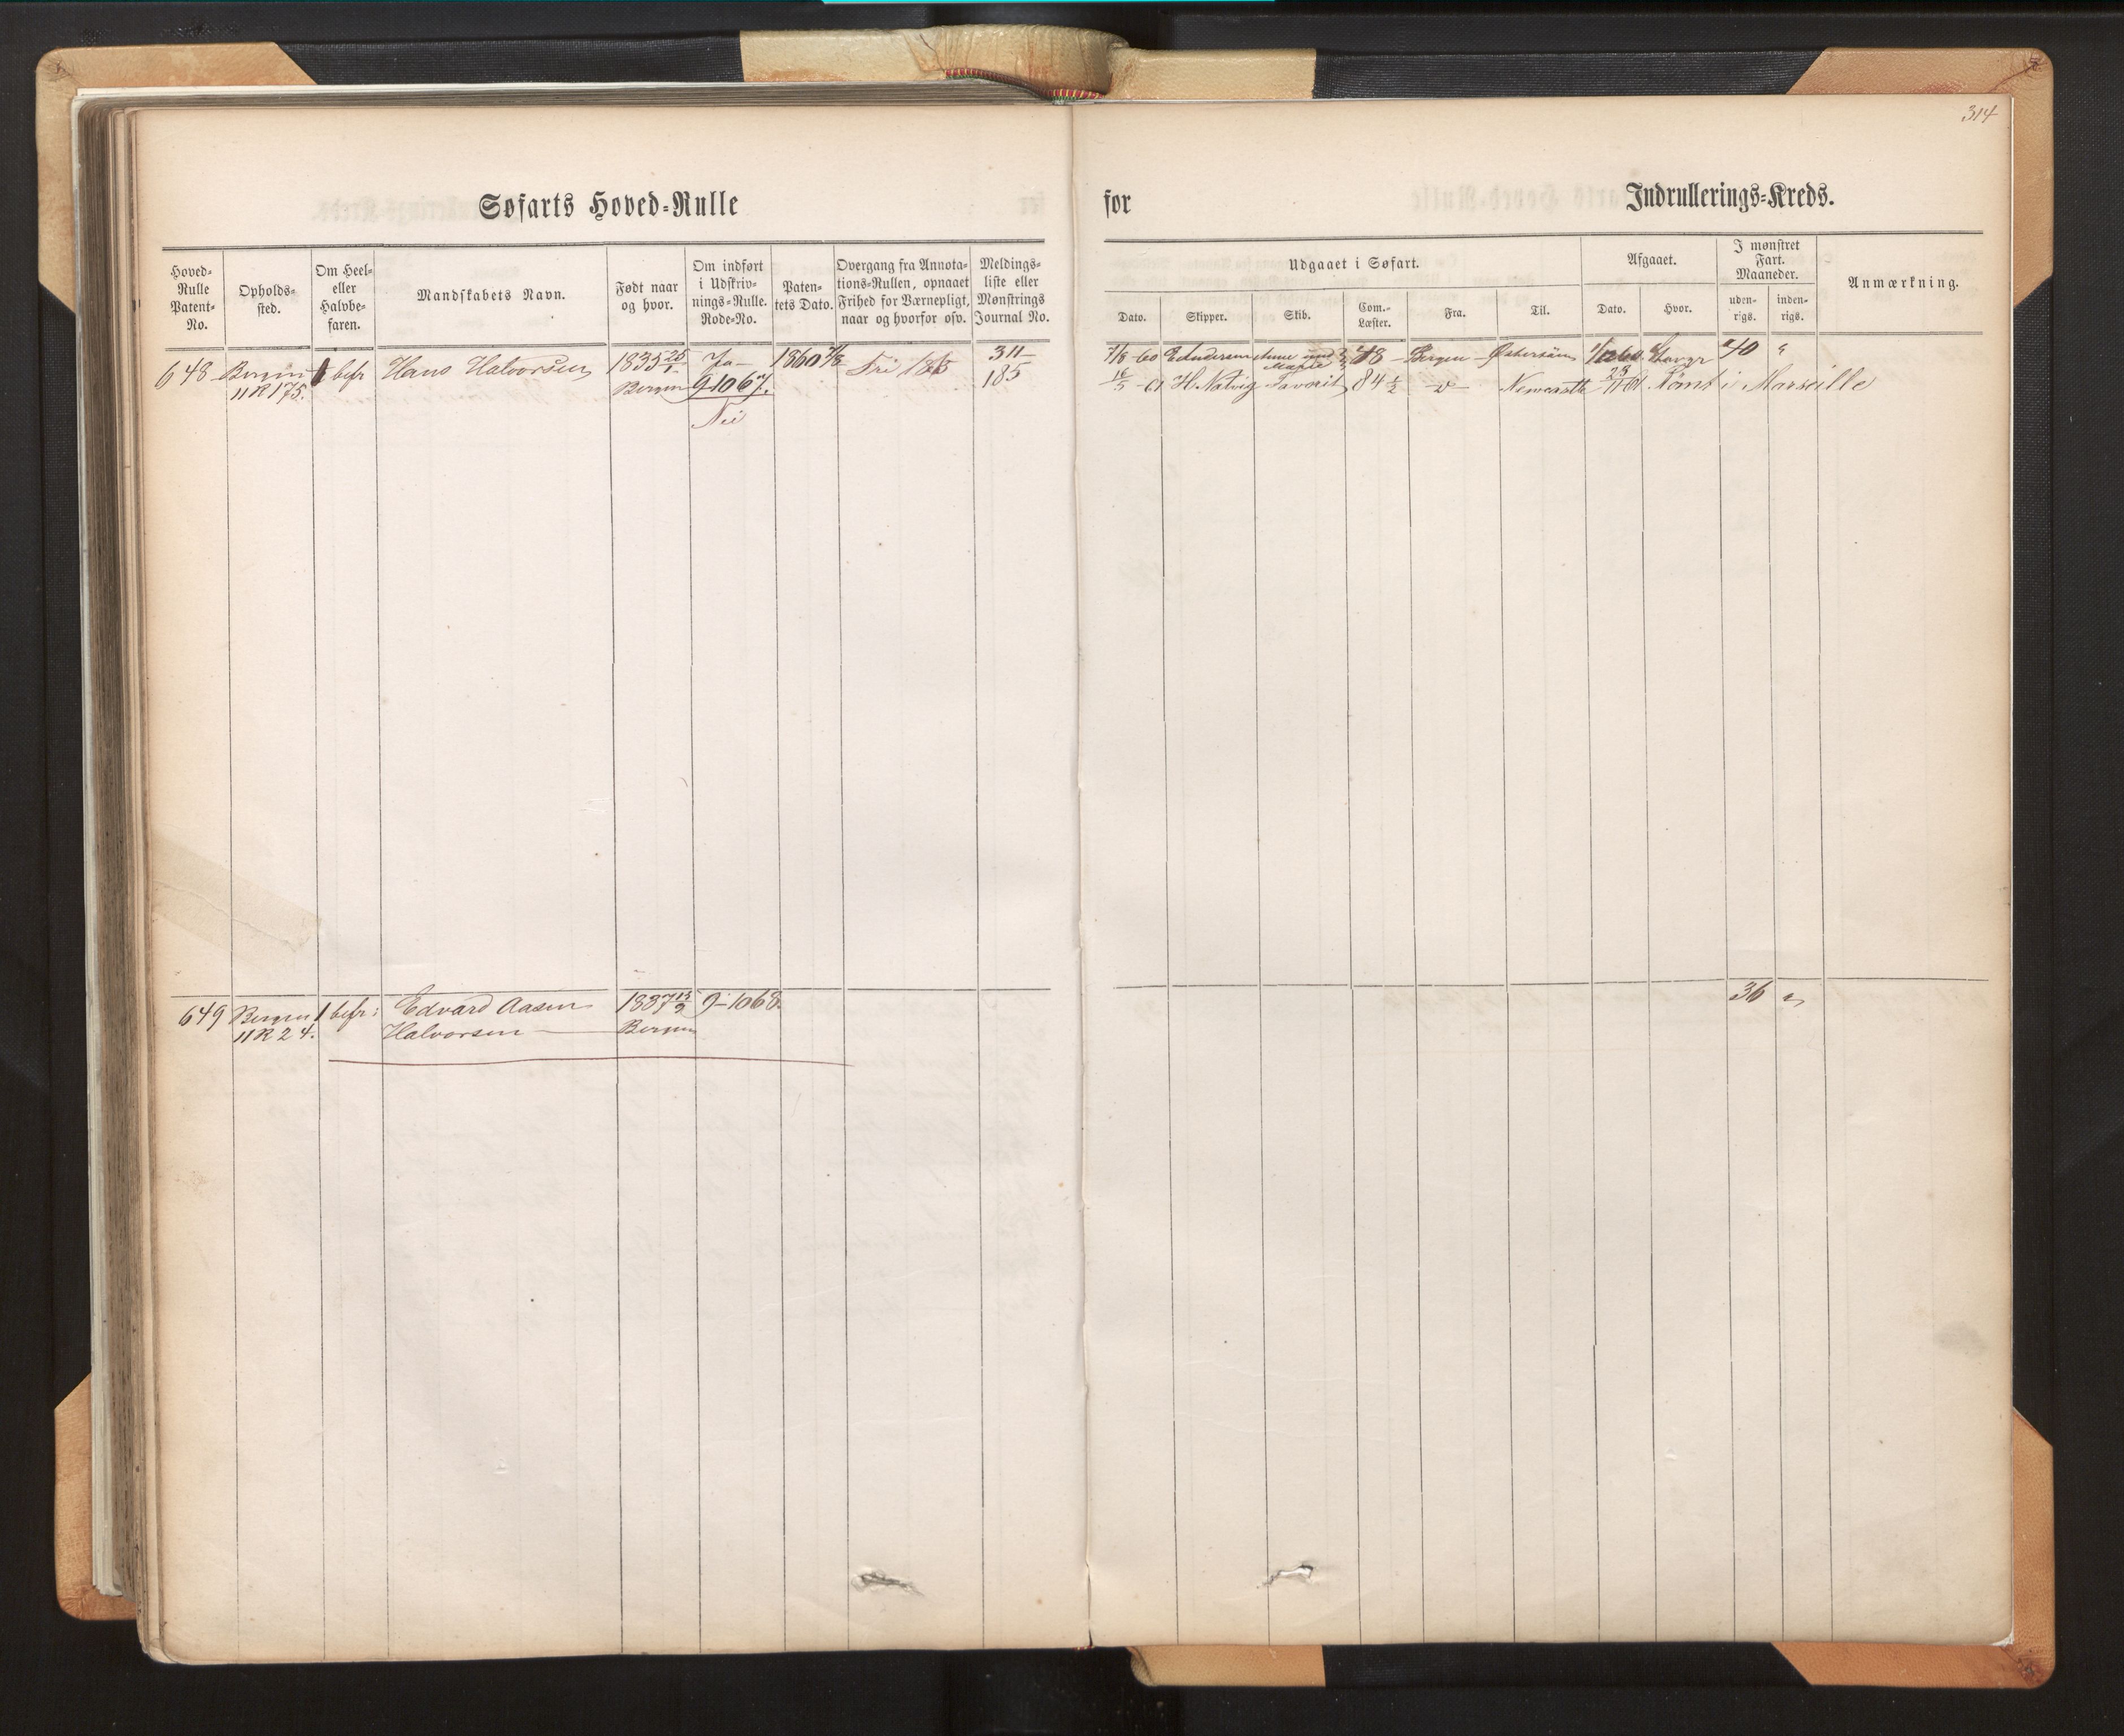 314
Søfarts Hoved-Rulle
for
Indrullerings-Kreds.
Hoved-Rulle Patent-No.
Opholds-sted.
Om Heel- eller Halvbe-faren.
Mandskabets Navn.
Født naar og hvor.
Om indført i Udskriv-nings-Rulle. Rode-No.
Paten-tets Dato.
Overgang fra Annota-tions-Rullen, opnaaet Frihed for Værnepligt, naar og hvorfor osv.
Meldings-liste eller Mønstrings Journal No.
Udgaaet i Søfart.
Dato.
Skipper.
Skib.
Com.-Læster.
Fra.
Til.
Afgaaet.
Dato.
Hvor.
I mønstret Fart. Maaneder.
uden-rigs.
inden-rigs.
Anmærkning.
648 Bergen befr Hans Halvorsen 1835 Ja 1860 7/8 Fri 311
11R175. Bergen 9-1067. 185
Nei
7/8 60 E Andersen Anne Marie 48 Bergen Østersøen 40
16/5 61 H. Natvig Favorit 84 1/2 Newcastle Rømt i Marseille
649 Bergen 1 befr: Edvard Aasen 1837 9-1068.
11R24. Halvorsen Bergen
36